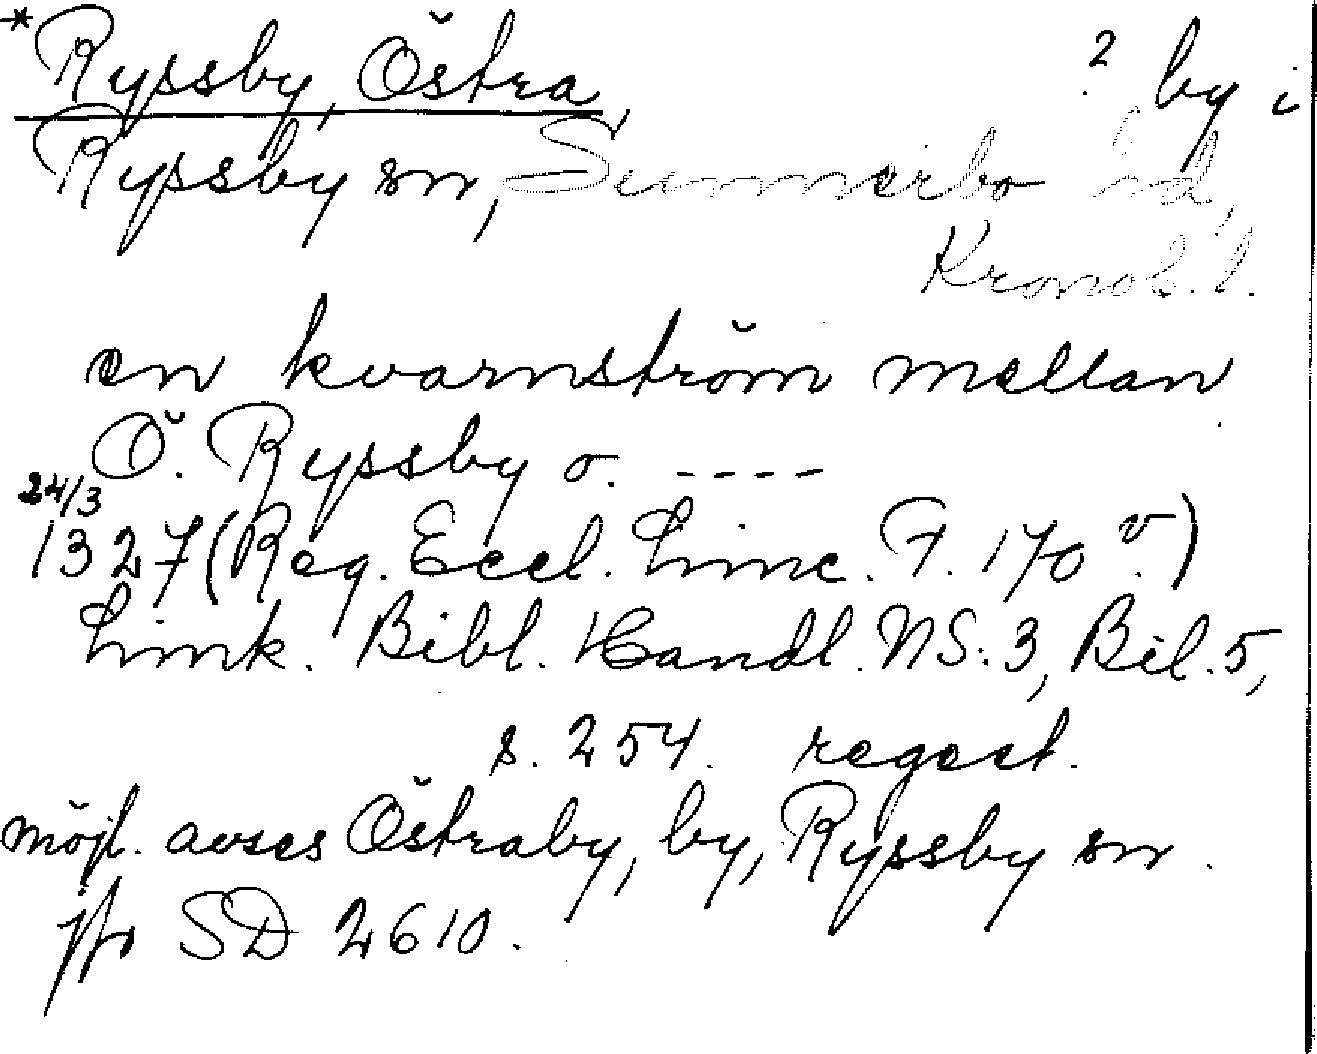 *Ryssby, Östra ? by i
Ryssby sn, Sunnerbo hd,
Kronob. l.
en kvarnström mellan
Ö. Ryssby o. ----
24/3
1327 (Reg. Eccl. Linc. F. 170 v.)
Link. Bibl. Handl. NS: 3, Bil. 5,
s. 254. regest.
möjl. avses Östraby, by, Ryssby sn.
jfr SD 2610.